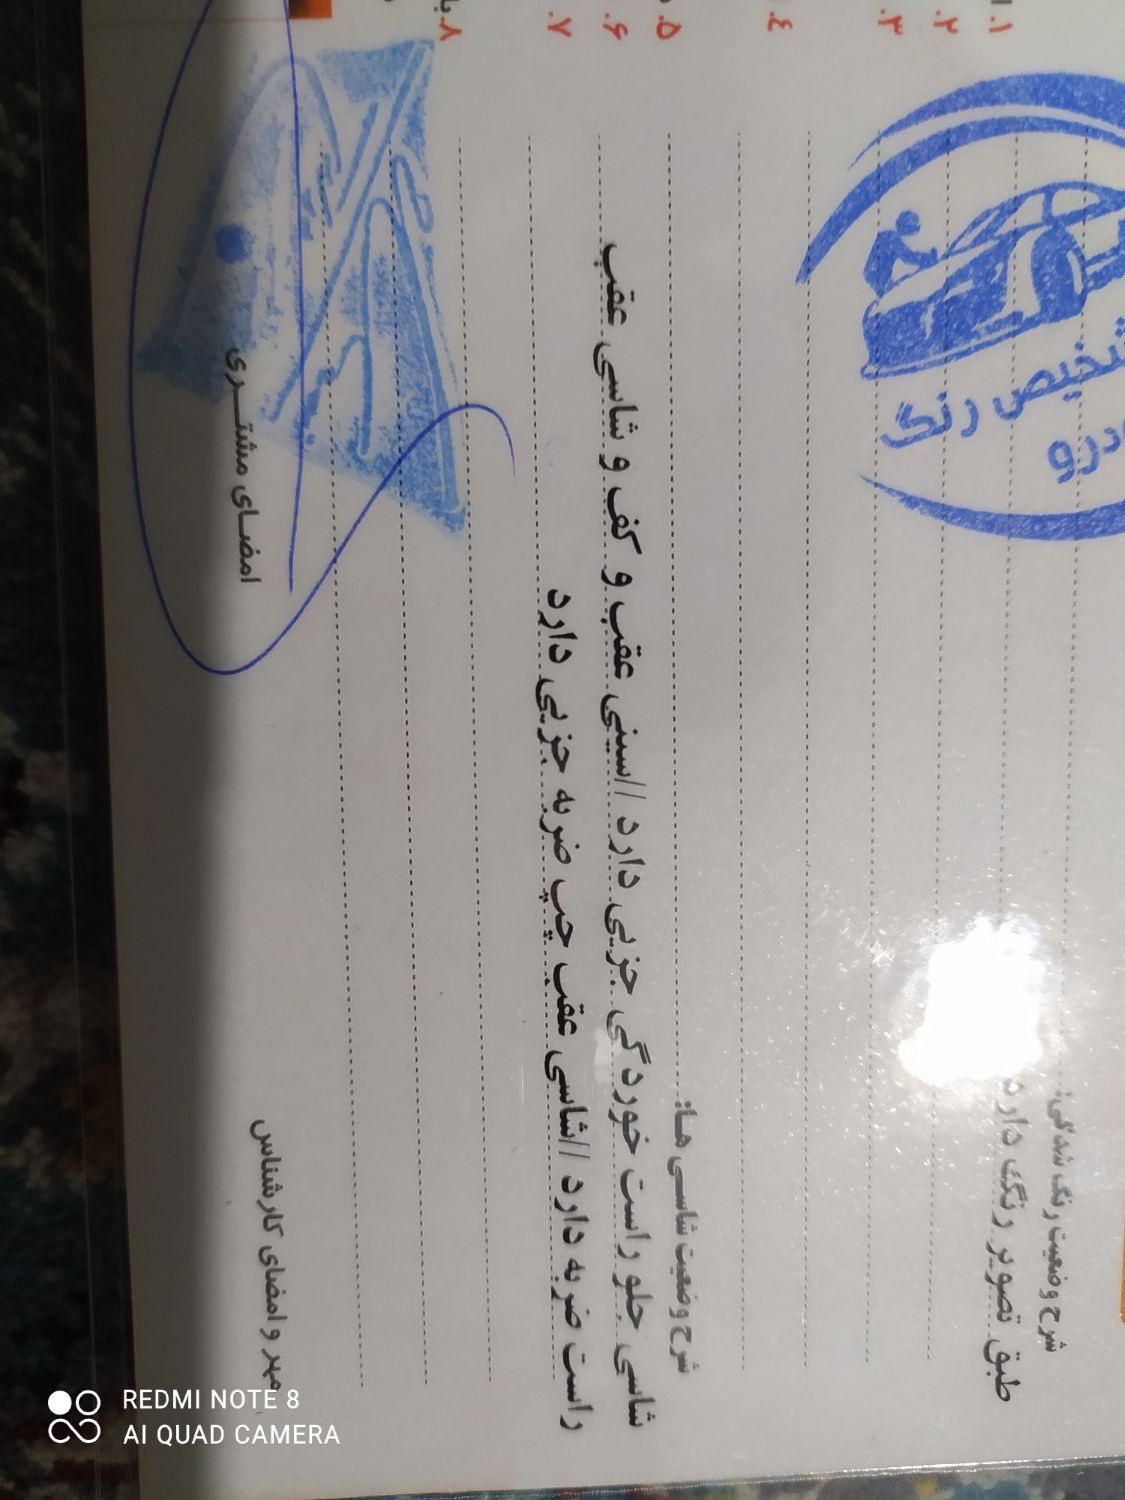 شرح وضعیت رنگ شدگی:
طبق تصویر رنگ دارد
شرح وضعیت شاسی ها:
شاسی جلو راست خوردگی جزیی دارد //سینی عقب و کف و شاسی عقب
راست ضربه دارد //شاسی عقب چپ ضربه جزیی دارد
مهر و امضای کارشناس
امضـای مشتـــری
تشخیص رنگ
۱.
۲.
۳.
۴.
۵.
۶.
۷.
۸.
REDMI NOTE 8
AI QUAD CAMERA